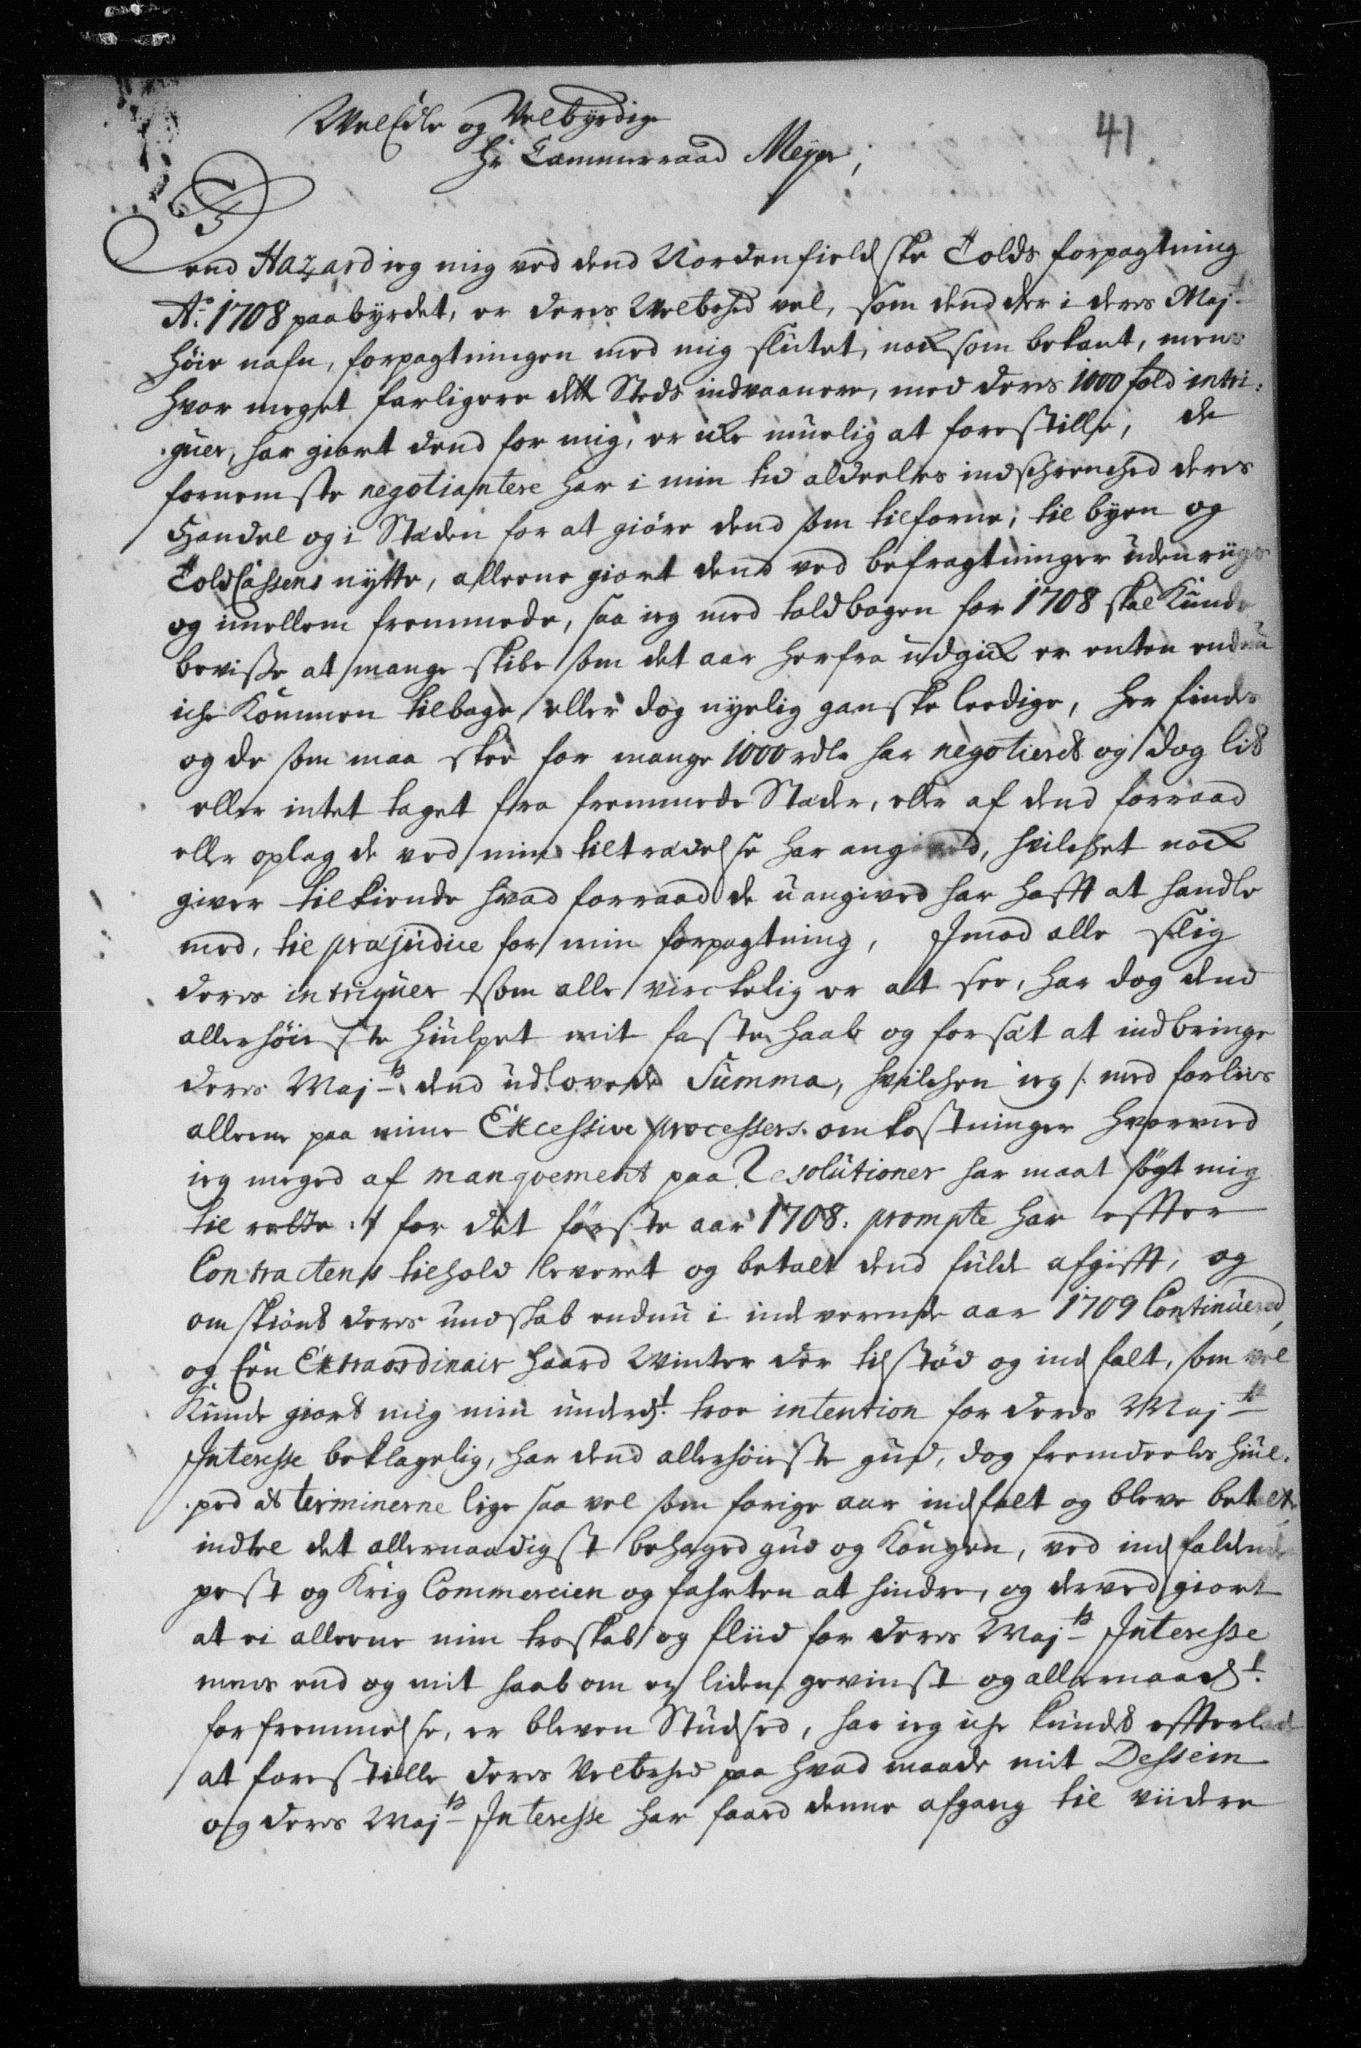 WelEdle og Velbyrdige
Hr Cammerraad Meyer,
41
Dend Hazard ieg mig ved dend Nordenfieldske Tolds forpagtning
Ao: 1708 paabyrdet, er deres Velbrhed vel, som dend der i deres Majts
höie nafn, forpagtningen med mig slutet, nok som bekant, mens
hvor meget farligere dette Steds indvaanere, med deres 1000 fold intri:
:guer, har giort dend for mig, er icke muelig at forestille, de
fornemste negotiantere har i min tid aldeeles indschrenched deres
Handel og i Stæden for at giöre dend som tilforne, til byen og
ToldCassens nytte, alleene giort dend ved befragtninger udenrigs
og imellem fremmede, saa ieg med toldbogen for 1708 skal Kunde
bevisse at mange skibe som det aar herfra udgick er enten endnu
iche Kommen tilbage eller dog nyelig ganske leedige, her findes
og de som maa skee for mange 1000 rdlr har negotieret og dog lit
eller intet taget fra fremmede Stæder, eller af dend forraad
eller oplag de ved min tiltrædelse har angived, hvilchet nock
giver tilkiende hvad forraad de uangived har hafft at handle
med, til præjudice for min forpagtning, Imod alle slig
deres intriguer som alle virckelig er at see, har dog dend
allerhöieste hiulpet mit faste haab og forsæt at indbringe
deres Majts dend udlovede Summa, hvilchen ieg /: med forliis
alleene paa mine Excessive processers omkostninger hvorved
ieg meged af manqvement paa Resolutioner har maat sögt mig
til rette :/ for det förste aar 1708. prompte har effter
Contractens tilhold leveret og betalt dend fulde afgifft, og
omskiönt deres undskab endnu i indeverende aar 1709 Continuered,
og Een Extraordinair haard Winter der tilstöd og indfalt, som vel
Kunde giort mig min underdt. troe intention for deres Majts
Interesse beklagelig, har dend allerhöieste gud, dog fremdeeles hiul:
:ped at terminerne lige saa vel som forige aar indfalt og bleve betalte
indtil det allernaadigst behaged gud og Kongen, ved indfaldende
pest og Krig Commercien og fahrten at hindre, og derved giort
at ei alleene min troskab og fliid for deres Majts Interesse
mens end og mit haab om en liden gevinst og allernaadt.
forfremmelse, er bleven Studsed, har ieg iche kundet effterlade
at forestille deres Velbrhed paa hvad maade mit Dessein
og deres Majts Interesse har faaed denne afgang til viidere